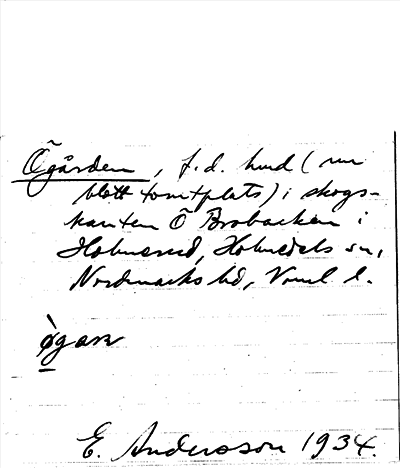 Ögården, f.d. hmd (nu
blott tomtplats) i skogs-
kanten Ö Brobacken i
Holmerud, Holmedals sn,
Nordmarks hd, Vrml l.
ø̀gaɳ
E. Andersson 1934.